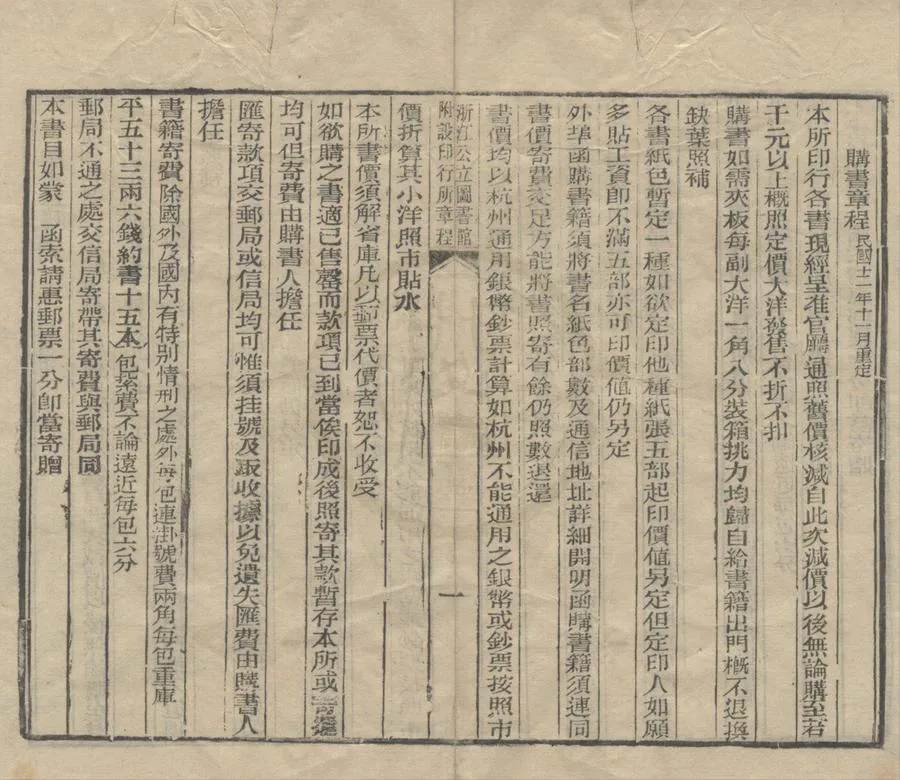 購書章程民國十二年十一月重定
本所印行各書現經呈准官廳通照舊價核減自此次減價以後無論購至若
干元以上概照定價大洋發售不折不扣
購書如需夾板每副大洋一角八分裝箱挑力均歸自給書籍出門概不退換
缺葉照補
各書紙色暫定一種如欲定印他種紙張五部起印價值另定但定印人如願
多貼工資卽不滿五部亦可印價値仍另定
外埠函購書籍須將書名紙色部數及通信地址詳細開明函購書籍須連同
書價寄費交足方能將書照寄有餘仍照數退還
書價均以杭州通用銀幣鈔票計算如杭州不能通用之銀幣或鈔票按照市
浙江公立圖書館
附設印行所章程
一
價折算其小洋照市貼水
本所書價須解省庫凡以郵票代價者恕不收受
如欲購之書適已售罄而款項已到當俟印成後照寄其款暫存本所或寄還
均可但寄費由購書人擔任
匯寄款項交郵局或信局均可惟須挂號及取收據以免遺失匯費由購書人
擔任
書籍寄費除國外及國內有特別情形之處外每包連掛號費兩角每包重庫
平五十三兩六錢約書十五本包紮費不論遠近每包六分
郵局不通之處交信局寄帶其寄費與郵局同
本書目如蒙 函索請惠郵票一分卽當寄贈